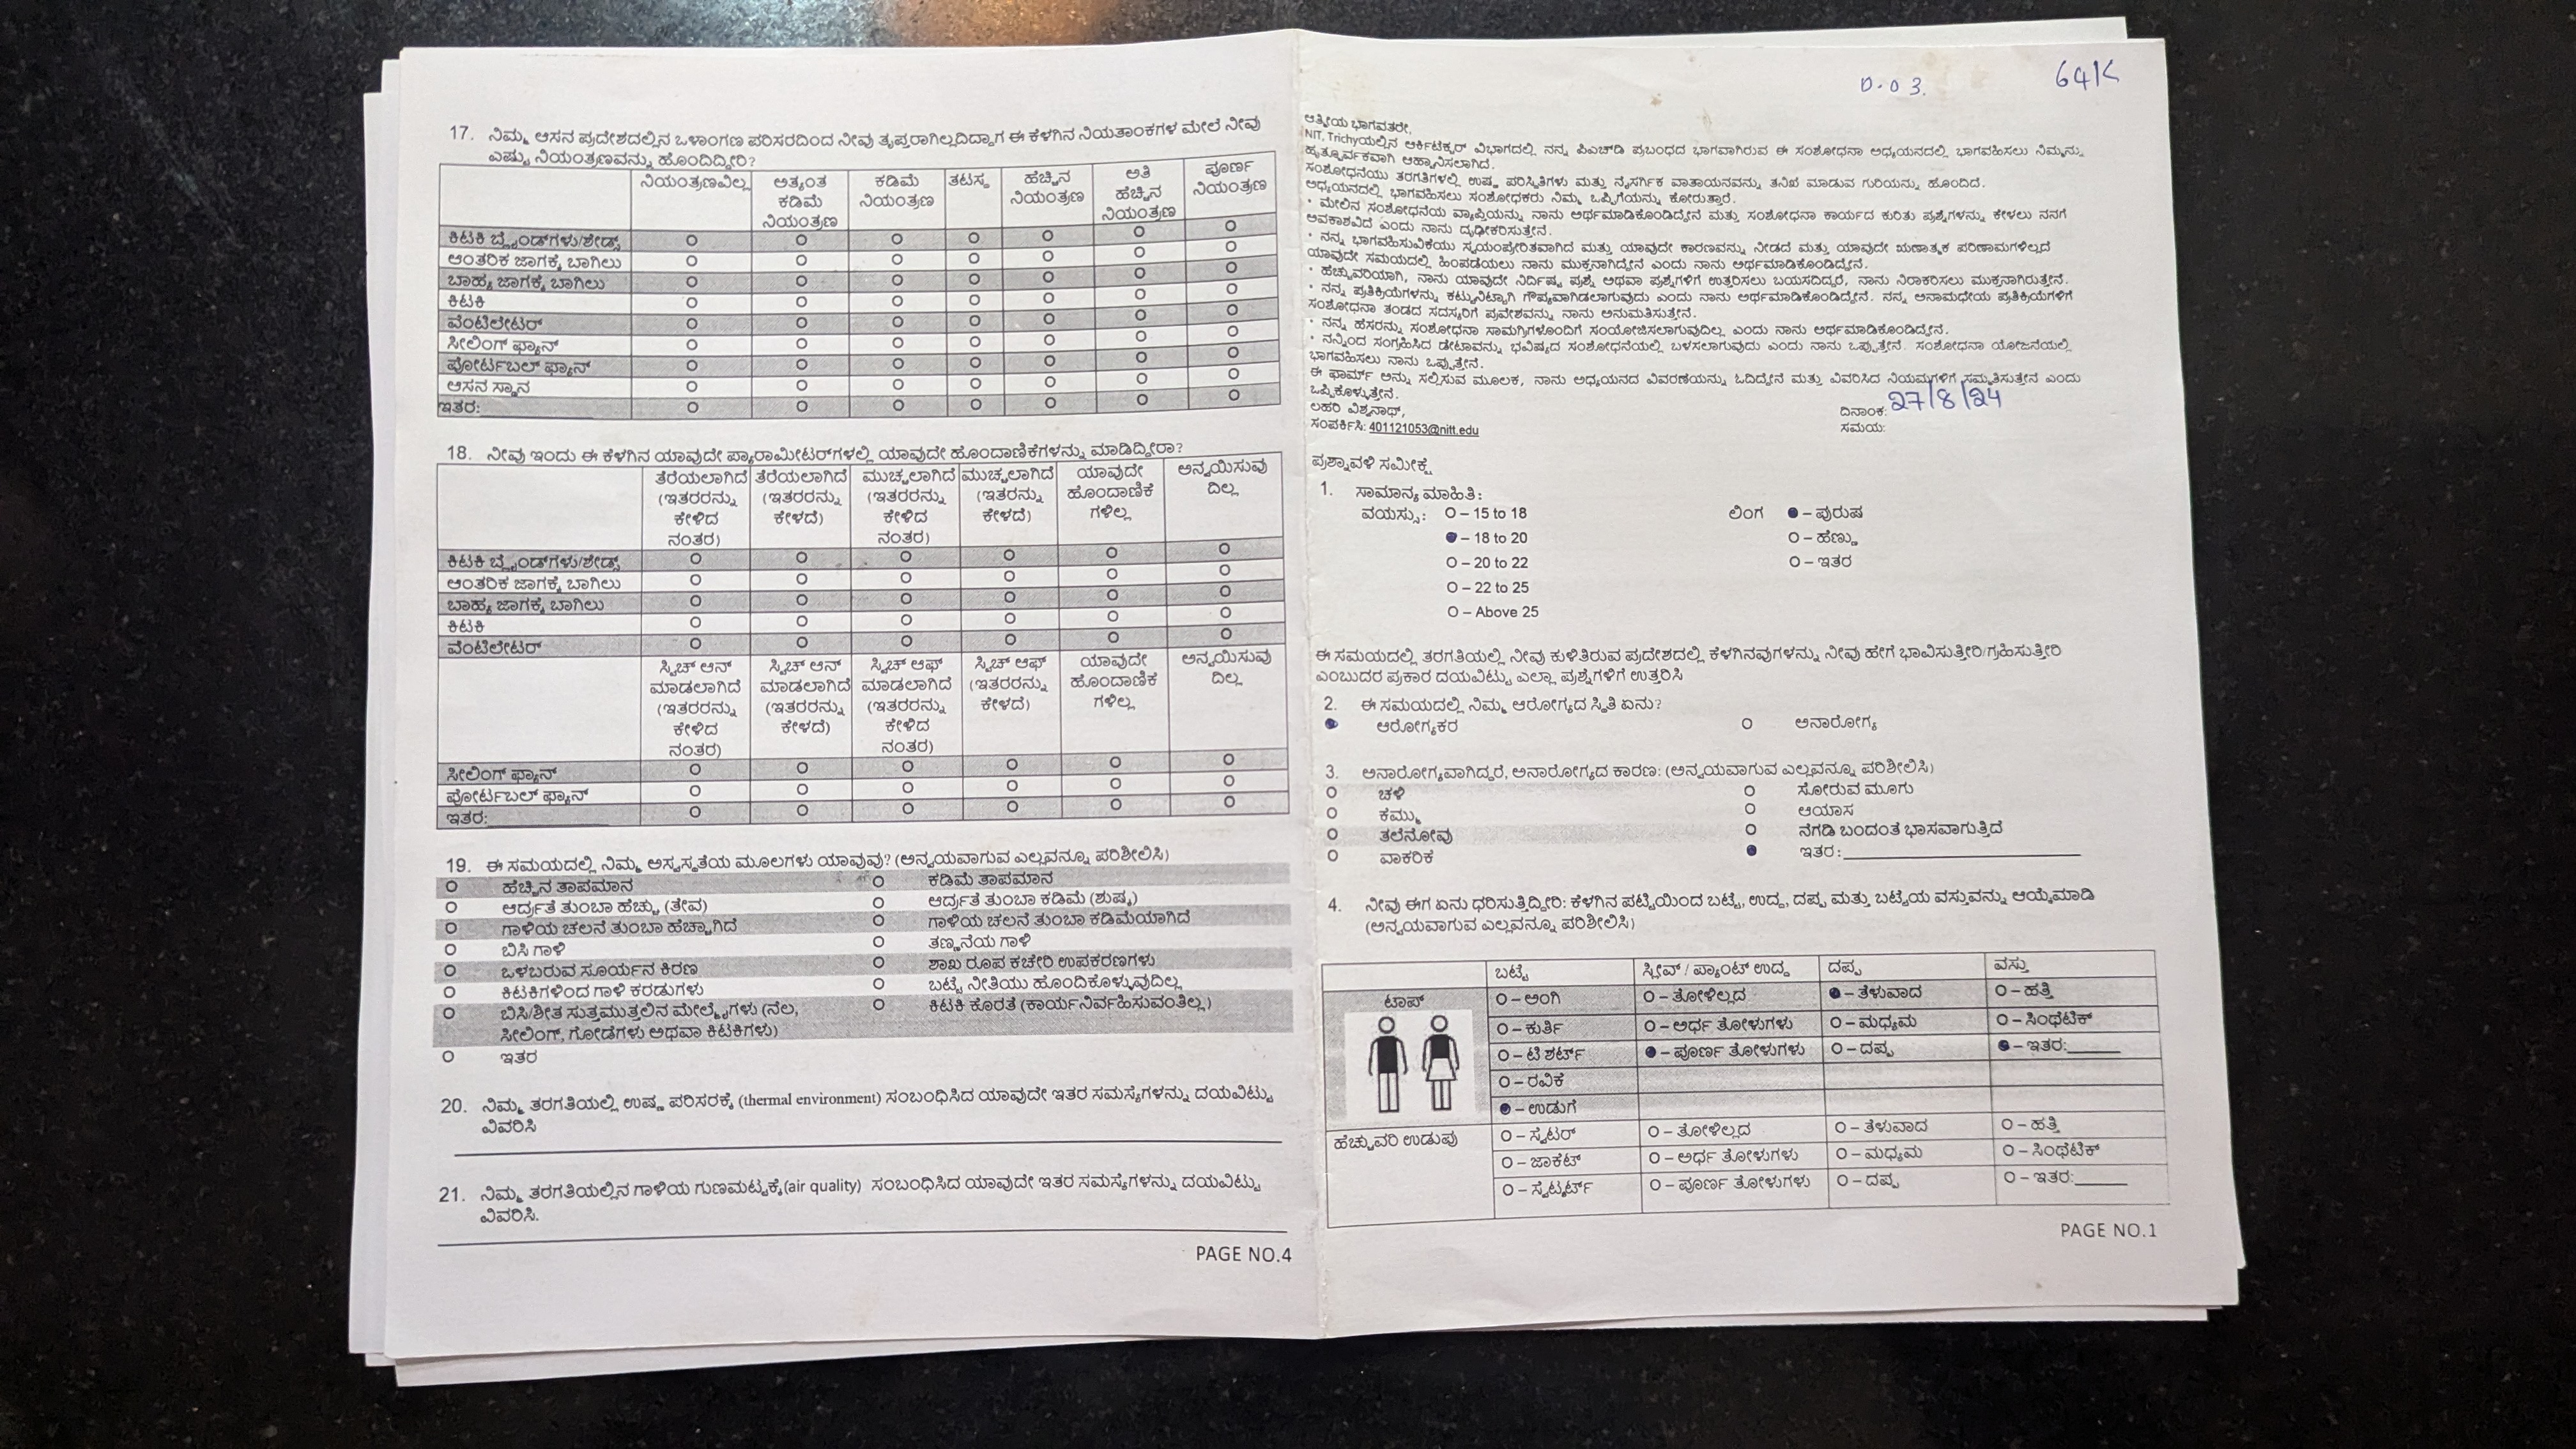 17. ನಿಮ್ಮ ಆಸನ ಪ್ರದೇಶದಲ್ಲಿನ ಒಳಾಂಗಣ ಪರಿಸರದಿಂದ ನೀವು ತೃಪ್ತರಾಗಿಲ್ಲದಿದ್ದಾಗ ಈ ಕೆಳಗಿನ ನಿಯತಾಂಕಗಳ ಮೇಲೆ ನೀವು
ಎಷ್ಟು ನಿಯಂತ್ರಣವನ್ನು ಹೊಂದಿದ್ದೀರಿ?
ನಿಯಂತ್ರಣವಿಲ್ಲ ಅತ್ಯಂತ ಕಡಿಮೆ ನಿಯಂತ್ರಣ ಕಡಿಮೆ ನಿಯಂತ್ರಣ ತಟಸ್ಥ ಹೆಚ್ಚಿನ ನಿಯಂತ್ರಣ ಅತಿ ಹೆಚ್ಚಿನ ನಿಯಂತ್ರಣ ಪೂರ್ಣ ನಿಯಂತ್ರಣ
ಕಿಟಕಿ ಬ್ಲೈಂಡ್‌ಗಳು/ಶೇಡ್ಸ್ O O O O O O O
ಆಂತರಿಕ ಜಾಗಕ್ಕೆ ಬಾಗಿಲು O O O O O O O
ಬಾಹ್ಯ ಜಾಗಕ್ಕೆ ಬಾಗಿಲು O O O O O O O
ಕಿಟಕಿ O O O O O O O
ವೆಂಟಿಲೇಟರ್ O O O O O O O
ಸೀಲಿಂಗ್ ಫ್ಯಾನ್ O O O O O O O
ಪೋರ್ಟಬಲ್ ಫ್ಯಾನ್ O O O O O O O
ಆಸನ ಸ್ಥಾನ O O O O O O O
ಇತರ: O O O O O O O
18. ನೀವು ಇಂದು ಈ ಕೆಳಗಿನ ಯಾವುದೇ ಪ್ಯಾರಾಮೀಟರ್‌ಗಳಲ್ಲಿ ಯಾವುದೇ ಹೊಂದಾಣಿಕೆಗಳನ್ನು ಮಾಡಿದ್ದೀರಾ?
ತೆರೆಯಲಾಗಿದೆ (ಇತರರನ್ನು ಕೇಳಿದ ನಂತರ) ತೆರೆಯಲಾಗಿದೆ (ಇತರರನ್ನು ಕೇಳದೆ) ಮುಚ್ಚಲಾಗಿದೆ (ಇತರರನ್ನು ಕೇಳಿದ ನಂತರ) ಮುಚ್ಚಲಾಗಿದೆ (ಇತರರನ್ನು ಕೇಳದೆ) ಯಾವುದೇ ಹೊಂದಾಣಿಕೆ ಗಳಿಲ್ಲ ಅನ್ವಯಿಸುವು ದಿಲ್ಲ
ಕಿಟಕಿ ಬ್ಲೈಂಡ್‌ಗಳು/ಶೇಡ್ಸ್ O O O O O O
ಆಂತರಿಕ ಜಾಗಕ್ಕೆ ಬಾಗಿಲು O O O O O O
ಬಾಹ್ಯ ಜಾಗಕ್ಕೆ ಬಾಗಿಲು O O O O O O
ಕಿಟಕಿ O O O O O O
ವೆಂಟಿಲೇಟರ್ O O O O O O
ಸ್ವಿಚ್ ಆನ್ ಮಾಡಲಾಗಿದೆ (ಇತರರನ್ನು ಕೇಳಿದ ನಂತರ) ಸ್ವಿಚ್ ಆನ್ ಮಾಡಲಾಗಿದೆ (ಇತರರನ್ನು ಕೇಳದೆ) ಸ್ವಿಚ್ ಆಫ್ ಮಾಡಲಾಗಿದೆ (ಇತರರನ್ನು ಕೇಳಿದ ನಂತರ) ಸ್ವಿಚ್ ಆಫ್ (ಇತರರನ್ನು ಕೇಳದೆ) ಯಾವುದೇ ಹೊಂದಾಣಿಕೆ ಗಳಿಲ್ಲ ಅನ್ವಯಿಸುವು ದಿಲ್ಲ
ಸೀಲಿಂಗ್ ಫ್ಯಾನ್ O O O O O O
ಪೋರ್ಟಬಲ್ ಫ್ಯಾನ್ O O O O O O
ಇತರ: O O O O O O
19. ಈ ಸಮಯದಲ್ಲಿ ನಿಮ್ಮ ಅಸ್ವಸ್ಥತೆಯ ಮೂಲಗಳು ಯಾವುವು? (ಅನ್ವಯವಾಗುವ ಎಲ್ಲವನ್ನೂ ಪರಿಶೀಲಿಸಿ)
O ಹೆಚ್ಚಿನ ತಾಪಮಾನ O ಕಡಿಮೆ ತಾಪಮಾನ
O ಆರ್ದ್ರತೆ ತುಂಬಾ ಹೆಚ್ಚು (ತೇವ) O ಆರ್ದ್ರತೆ ತುಂಬಾ ಕಡಿಮೆ (ಶುಷ್ಕ)
O ಗಾಳಿಯ ಚಲನೆ ತುಂಬಾ ಹೆಚ್ಚಾಗಿದೆ O ಗಾಳಿಯ ಚಲನೆ ತುಂಬಾ ಕಡಿಮೆಯಾಗಿದೆ
O ಬಿಸಿ ಗಾಳಿ O ತಣ್ಣನೆಯ ಗಾಳಿ
O ಒಳಬರುವ ಸೂರ್ಯನ ಕಿರಣ O ಶಾಖ ರೂಪ ಕಚೇರಿ ಉಪಕರಣಗಳು
O ಕಿಟಕಿಗಳಿಂದ ಗಾಳಿ ಕರಡುಗಳು O ಬಟ್ಟೆ ನೀತಿಯು ಹೊಂದಿಕೊಳ್ಳುವುದಿಲ್ಲ
O ಬಿಸಿ/ಶೀತ ಸುತ್ತಮುತ್ತಲಿನ ಮೇಲ್ಮೈಗಳು (ನೆಲ, O ಕಿಟಕಿ ಕೊರತೆ (ಕಾರ್ಯನಿರ್ವಹಿಸುವಂತಿಲ್ಲ)
ಸೀಲಿಂಗ್, ಗೋಡೆಗಳು ಅಥವಾ ಕಿಟಕಿಗಳು)
O ಇತರ
20. ನಿಮ್ಮ ತರಗತಿಯಲ್ಲಿ ಉಷ್ಣ ಪರಿಸರಕ್ಕೆ (thermal environment) ಸಂಬಂಧಿಸಿದ ಯಾವುದೇ ಇತರ ಸಮಸ್ಯೆಗಳನ್ನು ದಯವಿಟ್ಟು
ವಿವರಿಸಿ
21. ನಿಮ್ಮ ತರಗತಿಯಲ್ಲಿನ ಗಾಳಿಯ ಗುಣಮಟ್ಟಕ್ಕೆ(air quality) ಸಂಬಂಧಿಸಿದ ಯಾವುದೇ ಇತರ ಸಮಸ್ಯೆಗಳನ್ನು ದಯವಿಟ್ಟು
ವಿವರಿಸಿ.
PAGE NO.4
D.03. 641K
ಆತ್ಮೀಯ ಭಾಗವತರೇ,
NIT, Trichyಯಲ್ಲಿನ ಆರ್ಕಿಟೆಕ್ಚರ್ ವಿಭಾಗದಲ್ಲಿ ನನ್ನ ಪಿಎಚ್‌ಡಿ ಪ್ರಬಂಧದ ಭಾಗವಾಗಿರುವ ಈ ಸಂಶೋಧನಾ ಅಧ್ಯಯನದಲ್ಲಿ ಭಾಗವಹಿಸಲು ನಿಮ್ಮನ್ನು
ಹೃತ್ಪೂರ್ವಕವಾಗಿ ಆಹ್ವಾನಿಸಲಾಗಿದೆ.
ಸಂಶೋಧನೆಯು ತರಗತಿಗಳಲ್ಲಿ ಉಷ್ಣ ಪರಿಸ್ಥಿತಿಗಳು ಮತ್ತು ನೈಸರ್ಗಿಕ ವಾತಾಯನವನ್ನು ತನಿಖೆ ಮಾಡುವ ಗುರಿಯನ್ನು ಹೊಂದಿದೆ.
ಅಧ್ಯಯನದಲ್ಲಿ ಭಾಗವಹಿಸಲು ಸಂಶೋಧಕರು ನಿಮ್ಮ ಒಪ್ಪಿಗೆಯನ್ನು ಕೋರುತ್ತಾರೆ.
• ಮೇಲಿನ ಸಂಶೋಧನೆಯ ವ್ಯಾಪ್ತಿಯನ್ನು ನಾನು ಅರ್ಥಮಾಡಿಕೊಂಡಿದ್ದೇನೆ ಮತ್ತು ಸಂಶೋಧನಾ ಕಾರ್ಯದ ಕುರಿತು ಪ್ರಶ್ನೆಗಳನ್ನು ಕೇಳಲು ನನಗೆ
ಅವಕಾಶವಿದೆ ಎಂದು ನಾನು ದೃಢೀಕರಿಸುತ್ತೇನೆ.
• ನನ್ನ ಭಾಗವಹಿಸುವಿಕೆಯು ಸ್ವಯಂಪ್ರೇರಿತವಾಗಿದೆ ಮತ್ತು ಯಾವುದೇ ಕಾರಣವನ್ನು ನೀಡದೆ ಮತ್ತು ಯಾವುದೇ ಋಣಾತ್ಮಕ ಪರಿಣಾಮಗಳಿಲ್ಲದೆ
ಯಾವುದೇ ಸಮಯದಲ್ಲಿ ಹಿಂಪಡೆಯಲು ನಾನು ಮುಕ್ತನಾಗಿದ್ದೇನೆ ಎಂದು ನಾನು ಅರ್ಥಮಾಡಿಕೊಂಡಿದ್ದೇನೆ.
• ಹೆಚ್ಚುವರಿಯಾಗಿ, ನಾನು ಯಾವುದೇ ನಿರ್ದಿಷ್ಟ ಪ್ರಶ್ನೆ ಅಥವಾ ಪ್ರಶ್ನೆಗಳಿಗೆ ಉತ್ತರಿಸಲು ಬಯಸದಿದ್ದರೆ, ನಾನು ನಿರಾಕರಿಸಲು ಮುಕ್ತನಾಗಿರುತ್ತೇನೆ.
• ನನ್ನ ಪ್ರತಿಕ್ರಿಯೆಗಳನ್ನು ಕಟ್ಟುನಿಟ್ಟಾಗಿ ಗೌಪ್ಯವಾಗಿಡಲಾಗುವುದು ಎಂದು ನಾನು ಅರ್ಥಮಾಡಿಕೊಂಡಿದ್ದೇನೆ. ನನ್ನ ಅನಾಮಧೇಯ ಪ್ರತಿಕ್ರಿಯೆಗಳಿಗೆ
ಸಂಶೋಧನಾ ತಂಡದ ಸದಸ್ಯರಿಗೆ ಪ್ರವೇಶವನ್ನು ನಾನು ಅನುಮತಿಸುತ್ತೇನೆ.
• ನನ್ನ ಹೆಸರನ್ನು ಸಂಶೋಧನಾ ಸಾಮಗ್ರಿಗಳೊಂದಿಗೆ ಸಂಯೋಜಿಸಲಾಗುವುದಿಲ್ಲ ಎಂದು ನಾನು ಅರ್ಥಮಾಡಿಕೊಂಡಿದ್ದೇನೆ.
• ನನ್ನಿಂದ ಸಂಗ್ರಹಿಸಿದ ಡೇಟಾವನ್ನು ಭವಿಷ್ಯದ ಸಂಶೋಧನೆಯಲ್ಲಿ ಬಳಸಲಾಗುವುದು ಎಂದು ನಾನು ಒಪ್ಪುತ್ತೇನೆ. ಸಂಶೋಧನಾ ಯೋಜನೆಯಲ್ಲಿ
ಭಾಗವಹಿಸಲು ನಾನು ಒಪ್ಪುತ್ತೇನೆ.
ಈ ಫಾರ್ಮ್ ಅನ್ನು ಸಲ್ಲಿಸುವ ಮೂಲಕ, ನಾನು ಅಧ್ಯಯನದ ವಿವರಣೆಯನ್ನು ಓದಿದ್ದೇನೆ ಮತ್ತು ವಿವರಿಸಿದ ನಿಯಮಗಳಿಗೆ ಸಮ್ಮತಿಸುತ್ತೇನೆ ಎಂದು
ಒಪ್ಪಿಕೊಳ್ಳುತ್ತೇನೆ.
ಲಹರಿ ವಿಶ್ವನಾಥ್, ದಿನಾಂಕ: 27/8/24
ಸಂಪರ್ಕಿಸಿ: 401121053@nitt.edu ಸಮಯ:
ಪ್ರಶ್ನಾವಳಿ ಸಮೀಕ್ಷೆ
1. ಸಾಮಾನ್ಯ ಮಾಹಿತಿ:
ವಯಸ್ಸು: O – 15 to 18 ಲಿಂಗ ● – ಪುರುಷ
● – 18 to 20 O – ಹೆಣ್ಣು
O – 20 to 22 O – ಇತರ
O – 22 to 25
O – Above 25
ಈ ಸಮಯದಲ್ಲಿ ತರಗತಿಯಲ್ಲಿ ನೀವು ಕುಳಿತಿರುವ ಪ್ರದೇಶದಲ್ಲಿ ಕೆಳಗಿನವುಗಳನ್ನು ನೀವು ಹೇಗೆ ಭಾವಿಸುತ್ತೀರಿ/ಗ್ರಹಿಸುತ್ತೀರಿ
ಎಂಬುದರ ಪ್ರಕಾರ ದಯವಿಟ್ಟು ಎಲ್ಲಾ ಪ್ರಶ್ನೆಗಳಿಗೆ ಉತ್ತರಿಸಿ
2. ಈ ಸಮಯದಲ್ಲಿ ನಿಮ್ಮ ಆರೋಗ್ಯದ ಸ್ಥಿತಿ ಏನು?
● ಆರೋಗ್ಯಕರ O ಅನಾರೋಗ್ಯ
3. ಅನಾರೋಗ್ಯವಾಗಿದ್ದರೆ, ಅನಾರೋಗ್ಯದ ಕಾರಣ: (ಅನ್ವಯವಾಗುವ ಎಲ್ಲವನ್ನೂ ಪರಿಶೀಲಿಸಿ)
O ಚಳಿ O ಸೋರುವ ಮೂಗು
O ಕೆಮ್ಮು O ಆಯಾಸ
O ತಲೆನೋವು O ನೆಗಡಿ ಬಂದಂತೆ ಭಾಸವಾಗುತ್ತಿದೆ
O ವಾಕರಿಕೆ ● ಇತರ:
4. ನೀವು ಈಗ ಏನು ಧರಿಸುತ್ತಿದ್ದೀರಿ: ಕೆಳಗಿನ ಪಟ್ಟಿಯಿಂದ ಬಟ್ಟೆ, ಉದ್ದ, ದಪ್ಪ ಮತ್ತು ಬಟ್ಟೆಯ ವಸ್ತುವನ್ನು ಆಯ್ಕೆಮಾಡಿ
(ಅನ್ವಯವಾಗುವ ಎಲ್ಲವನ್ನೂ ಪರಿಶೀಲಿಸಿ)
ಬಟ್ಟೆ ಸ್ಲೀವ್ / ಪ್ಯಾಂಟ್ ಉದ್ದ ದಪ್ಪ ವಸ್ತು
ಟಾಪ್ O – ಅಂಗಿ O – ತೋಳಿಲ್ಲದ ● – ತೆಳುವಾದ O – ಹತ್ತಿ
O – ಕುರ್ತಿ O – ಅರ್ಧ ತೋಳುಗಳು O – ಮಧ್ಯಮ O – ಸಿಂಥೆಟಿಕ್
O – ಟಿ ಶರ್ಟ್ ● – ಪೂರ್ಣ ತೋಳುಗಳು O – ದಪ್ಪ ● – ಇತರ:
O – ರವಿಕೆ
● – ಉಡುಗೆ
ಹೆಚ್ಚುವರಿ ಉಡುಪು O – ಸ್ವೆಟರ್ O – ತೋಳಿಲ್ಲದ O – ತೆಳುವಾದ O – ಹತ್ತಿ
O – ಜಾಕೆಟ್ O – ಅರ್ಧ ತೋಳುಗಳು O – ಮಧ್ಯಮ O – ಸಿಂಥೆಟಿಕ್
O – ಸ್ವೆಟ್ಶರ್ಟ್ O – ಪೂರ್ಣ ತೋಳುಗಳು O – ದಪ್ಪ O – ಇತರ:
PAGE NO.1